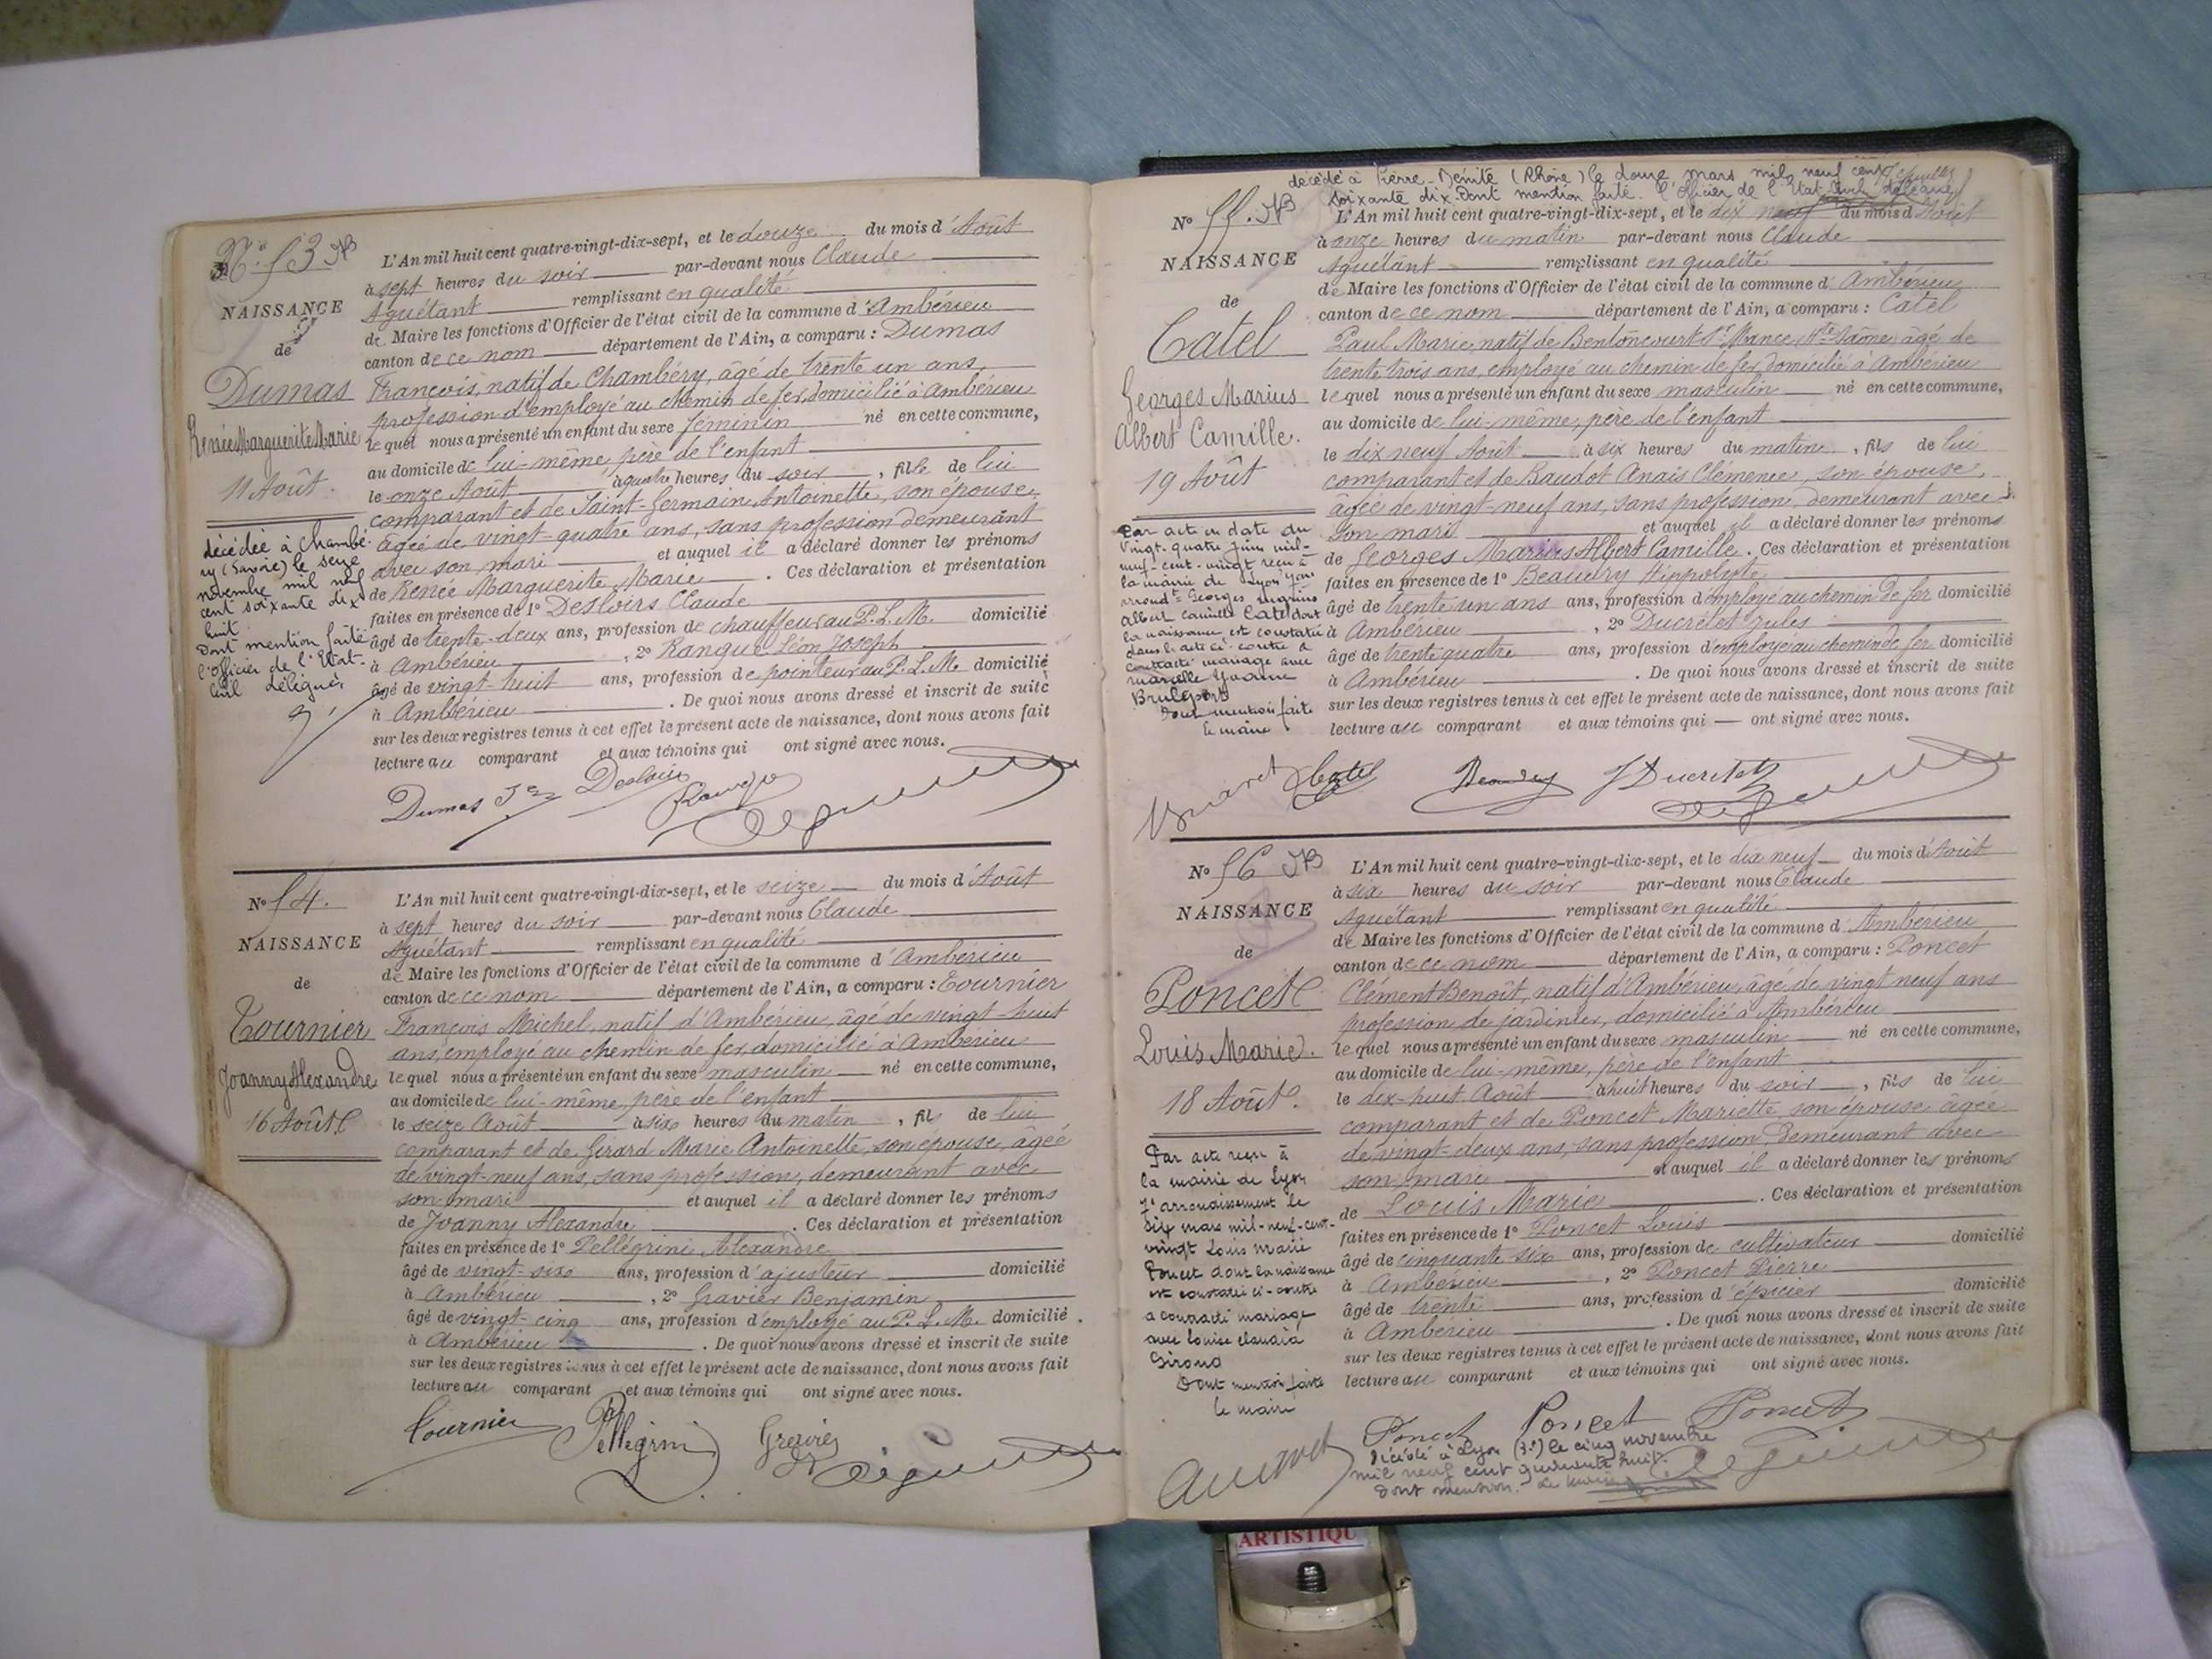 N° 53 N
NAISSANCE
de
Dumas
Renée Marguerite Marie
11 Août.
décédée à Chambé-
ry (Savoie) le seize
novembre mil neuf
cent soixante dix
huit
dont mention faite
l'Officier de l'Etat-
Civil délégué,
L'An mil huit cent quatre-vingt-dix-sept, et le douze du mois d'Août
à sept heures du soir par-devant nous Claude
Aguétant remplissant en qualité
de Maire les fonctions d'Officier de l'état civil de la commune d'Ambérieu
canton de ce nom département de l'Ain, a comparu : Dumas
François, natif de Chambéry, âgé de trente un ans,
profession d'employé au chemin de fer, domicilié à Ambérieu
lequel nous a présenté un enfant du sexe féminin né en cette commune,
au domicile de lui-même, père de l'enfant
le onze Août à quatre heures du soir, fille de lui
comparant et de Saint-Germain Antoinette, son épouse,
âgée de vingt-quatre ans, sans profession demeurant
avec son mari et auquel il a déclaré donner les prénoms
de Renée Marguerite Marie. Ces déclaration et présentation
faites en présence de 1° Desloirs Claude
âgé de trente-deux ans, profession de chauffeur au P.L.M. domicilié
à Ambérieu, 2° Ranque Léon Joseph
âgé de vingt-huit ans, profession de pointeur au P.L.M. domicilié
à Ambérieu. De quoi nous avons dressé et inscrit de suite
sur les deux registres tenus à cet effet le présent acte de naissance, dont nous avons fait
lecture au comparant et aux témoins qui ont signé avec nous.
Dumas Desloirs
N° 54.
NAISSANCE
de
Tournier
Joanny Alexandre
16 Août
L'An mil huit cent quatre-vingt-dix-sept, et le seize du mois d'Août
à sept heures du soir par-devant nous Claude
Aguétant remplissant en qualité
de Maire les fonctions d'Officier de l'état civil de la commune d'Ambérieu
canton de ce nom département de l'Ain, a comparu : Tournier
François Michel, natif d'Ambérieu, âgé de vingt-huit
ans, employé au chemin de fer, domicilié à Ambérieu
lequel nous a présenté un enfant du sexe masculin né en cette commune,
au domicile de lui-même, père de l'enfant
le seize Août à six heures du matin, fil de lui
comparant et de Girard Marie Antoinette, son épouse, âgée
de vingt-neuf ans, sans profession, demeurant avec
son mari et auquel il a déclaré donner les prénoms
de Joanny Alexandre. Ces déclaration et présentation
faites en présence de 1° Pellégrini Alexandre
âgé de vingt-six ans, profession d'ajusteur domicilié
à Ambérieu, 2° Gravier Benjamin
âgé de vingt-cinq ans, profession d'employé au P.L.M. domicilié
à Ambérieu. De quoi nous avons dressé et inscrit de suite
sur les deux registres tenus à cet effet le présent acte de naissance, dont nous avons fait
lecture au comparant et aux témoins qui ont signé avec nous.
Tournier Pellegrini
décédé à Pierre-Bénite (Rhône) le douze mars mil neuf cent
soixante dix. Dont mention faite. l'Officier de l'Etat-Civil délégué
N° 55. N
NAISSANCE
de
Catel
Georges Marius
Albert Camille.
19 Août
Par acte en date du
vingt-quatre juin mil-
neuf-cent-vingt reçu à
la mairie de Lyon
arrond^t Georges Marius
Albert Camille Catel dont
la naissance est constatée
dans l'acte ci-contre a
contracté mariage avec
Marcelle
dont mention faite
le maire
L'An mil huit cent quatre-vingt-dix-sept, et le dix neuf du mois d'Août
à onze heures du matin par-devant nous Claude
Aguétant remplissant en qualité
de Maire les fonctions d'Officier de l'état civil de la commune d'Ambérieu
canton de ce nom département de l'Ain, a comparu : Catel
Paul Marie, natif de âgé de
trente trois ans, employé au chemin de fer, domicilié à Ambérieu
lequel nous a présenté un enfant du sexe masculin né en cette commune,
au domicile de lui-même, père de l'enfant
le dix neuf Août à six heures du matin, fils de lui
comparant et de Baudot Anaïs Clémence, son épouse,
âgée de vingt-neuf ans, sans profession, demeurant avec
son mari et auquel il a déclaré donner les prénoms
de Georges Marius Albert Camille. Ces déclaration et présentation
faites en présence de 1° Beaudry Hippolyte
âgé de trente un ans ans, profession d'employé au chemin de fer domicilié
à Ambérieu, 2° Ducrétet Jules
âgé de trente quatre ans, profession d'employé au chemin de fer domicilié
à Ambérieu. De quoi nous avons dressé et inscrit de suite
sur les deux registres tenus à cet effet le présent acte de naissance, dont nous avons fait
lecture au comparant et aux témoins qui ont signé avec nous.
Catel Beaudry J Ducretet
N° 56 N
NAISSANCE
de
Poncet
Louis Marie.
18 Août.
Par acte reçu à
la mairie de Lyon
7e arrondissement le
dix mars mil-neuf-cent-
vingt Louis Marie
Poncet dont la naissance
est constatée ci-contre
a contracté mariage
avec Louise Claudia
Giroud
Dont mention faite
le maire
L'An mil huit cent quatre-vingt-dix-sept, et le dix neuf du mois d'Août
à six heures du soir par-devant nous Claude
Aguétant remplissant en qualité
de Maire les fonctions d'Officier de l'état civil de la commune d'Ambérieu
canton de ce nom département de l'Ain, a comparu : Poncet
Clément Benoît, natif d'Ambérieu, âgé de vingt neuf ans
profession de jardinier, domicilié à Ambérieu
lequel nous a présenté un enfant du sexe masculin né en cette commune,
au domicile de lui-même, père de l'enfant
le dix-huit Août à huit heures du soir, fils de lui
comparant et de Poncet Mariette, son épouse âgée
de vingt-deux ans, sans profession, demeurant avec
son mari et auquel il a déclaré donner les prénoms
de Louis Marie. Ces déclaration et présentation
faites en présence de 1° Poncet Louis
âgé de cinquante six ans, profession de cultivateur domicilié
à Ambérieu, 2° Poncet Pierre
âgé de trente ans, profession d'épicier domicilié
à Ambérieu. De quoi nous avons dressé et inscrit de suite
sur les deux registres tenus à cet effet le présent acte de naissance, dont nous avons fait
lecture au comparant et aux témoins qui ont signé avec nous.
Poncet Poncet Poncet
Décédé à Lyon (3e) le cinq novembre
mil neuf cent quarante huit.
Dont mention. Le Maire
ARTISTIQU